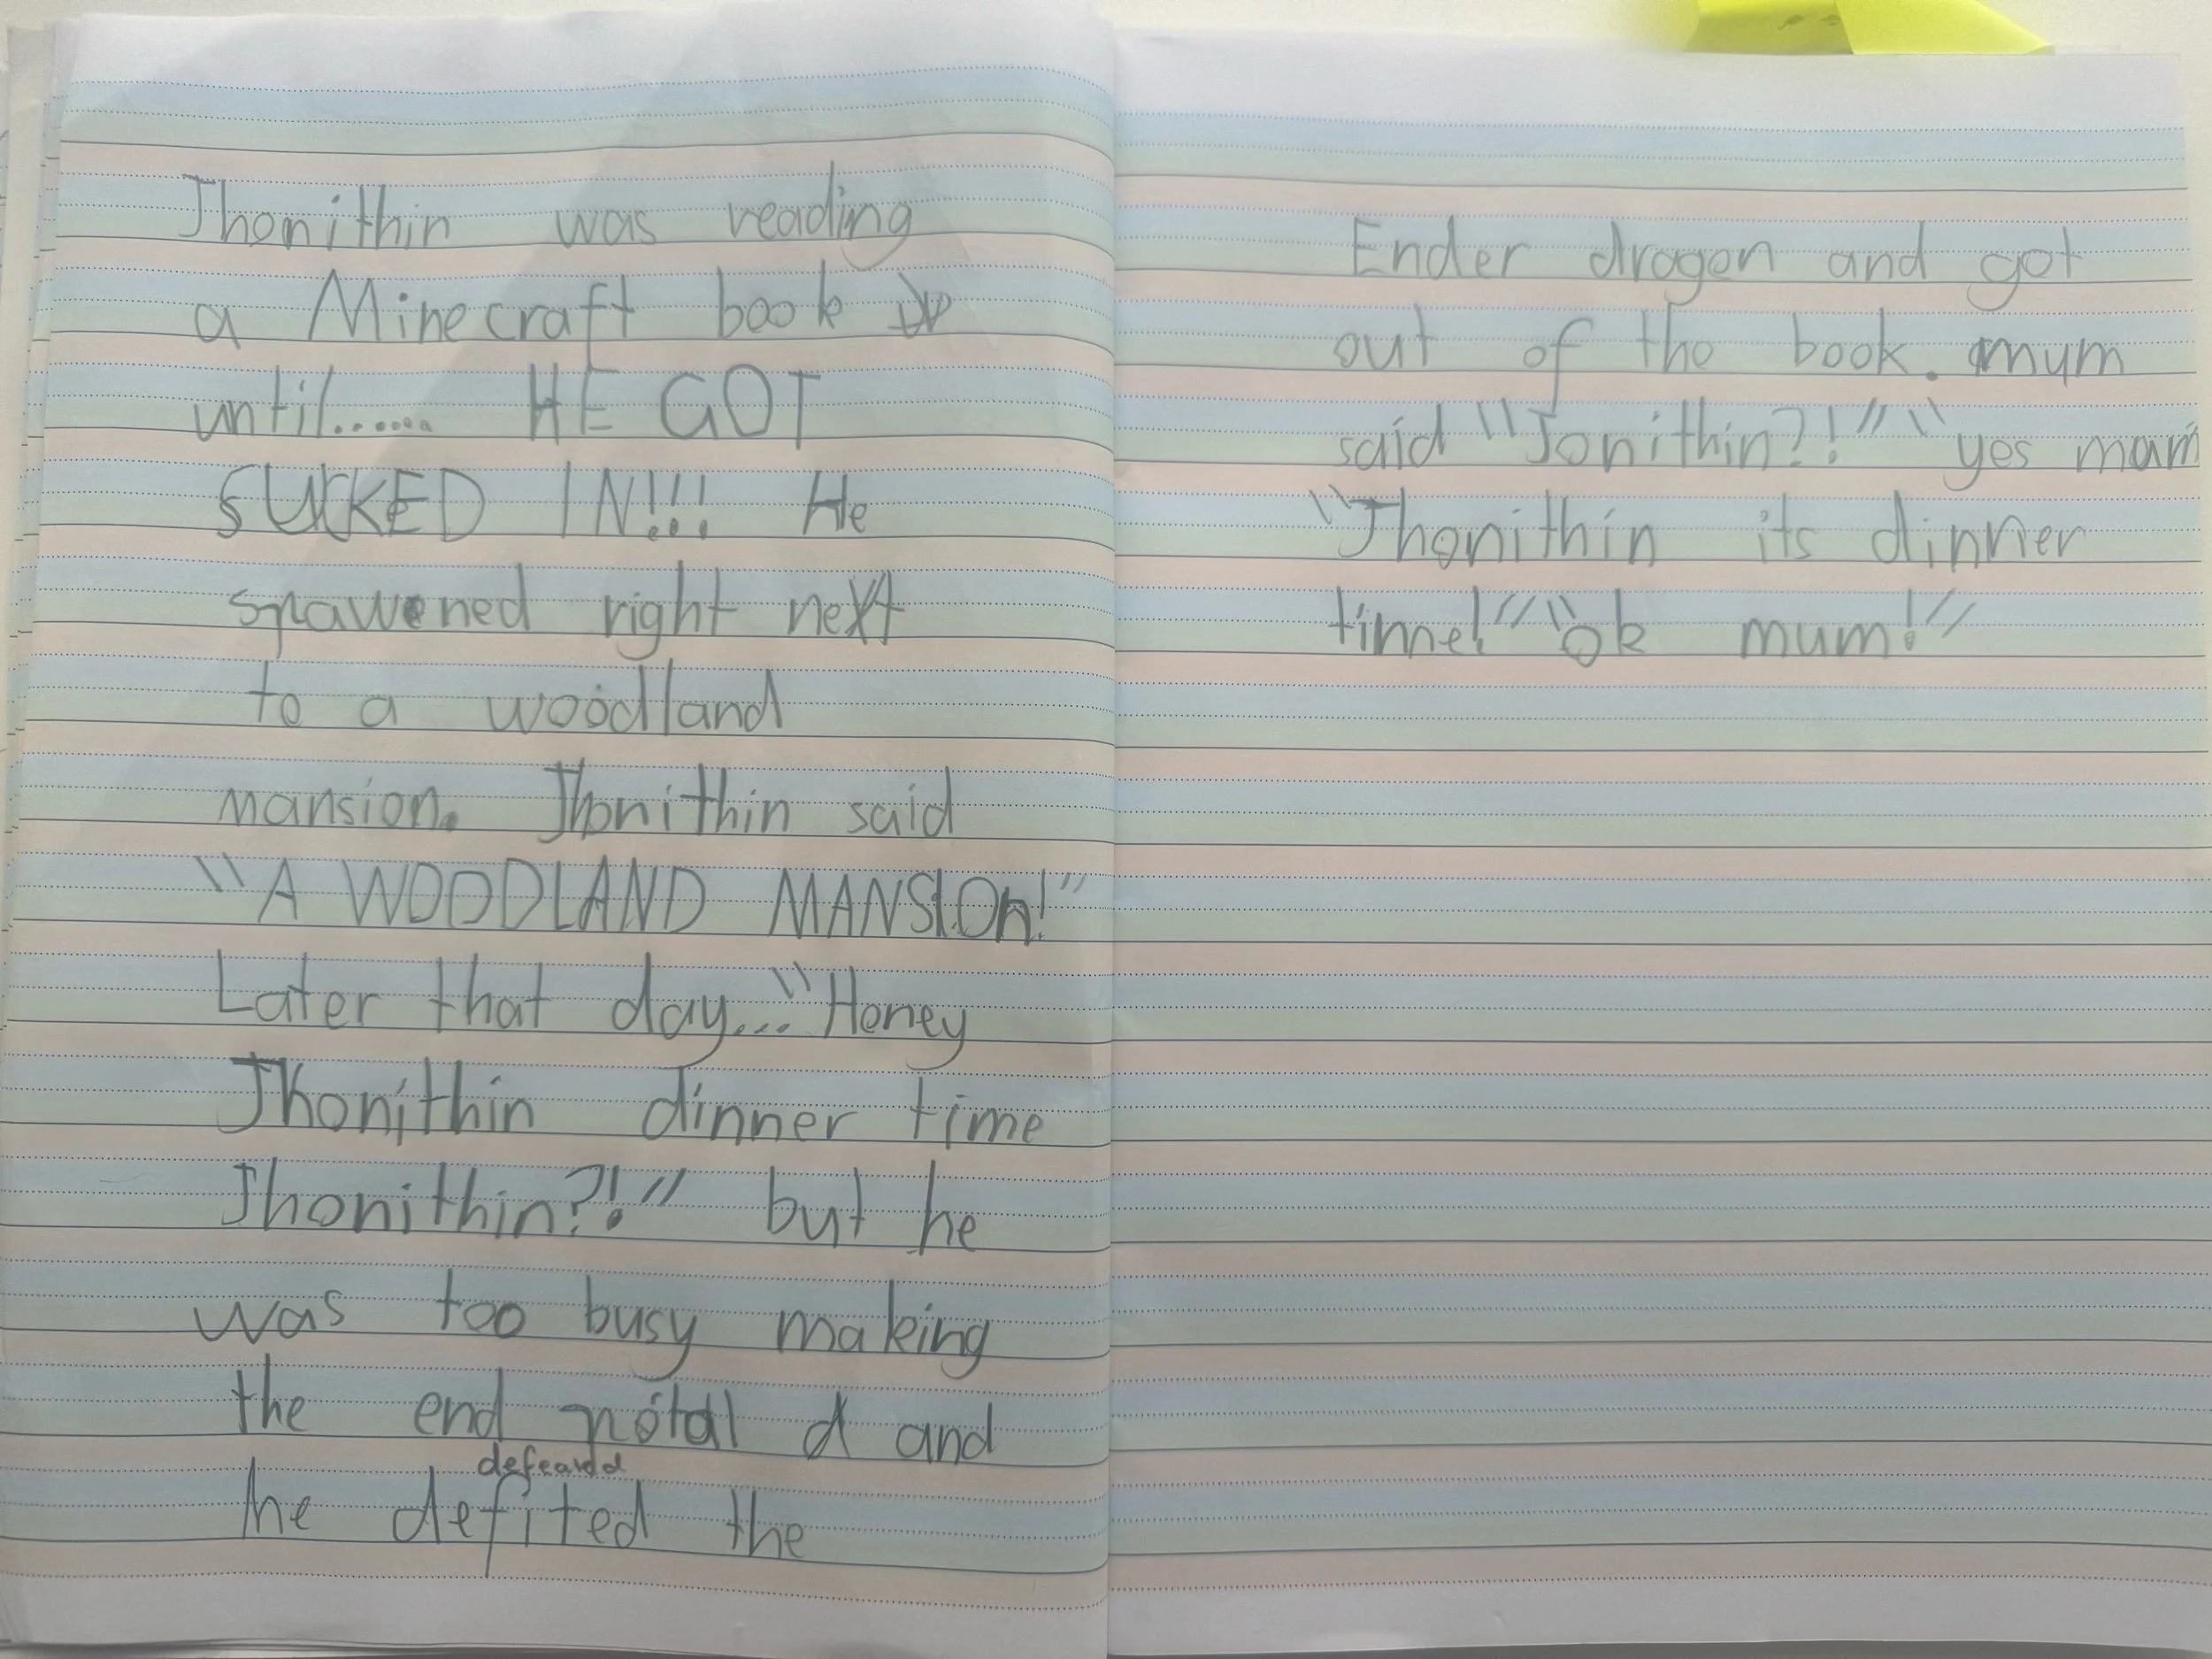 Jhonithin was reading
a Minecraft book
until...... HE GOT
SUCKED IN!!! He
spawened right next
to a woodland
mansion. Jhonithin said
"A WOODLAND MANSIOn!"
Later that day... "Honey
Jhonithin dinner time
Jhonithin?!" but he
was too busy making
the end potal d and
he defited the
Ender dragon and got
out of the book. mum
said "Jonithin?!" "yes mam
"Jhonithin its dinner
time!" "ok mum!"